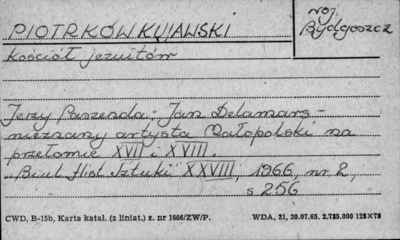 PIOTRKÓW KUJAWSKI
woj. Bydgoszcz
Kościół jezuitów
Jerzy Paszenda: Jan Delamars -
nieznany artysta Małopolski na
przełomie XVII i XVIII.
"Biul. Hist. Sztuki" XXVIII, 1966, nr 2,
s 256
CWD, B-15b, Karta katal. (z liniat.) z. nr 1606/ZW/P. WDA, 21, 28.07.65. 2.725.000 125X75